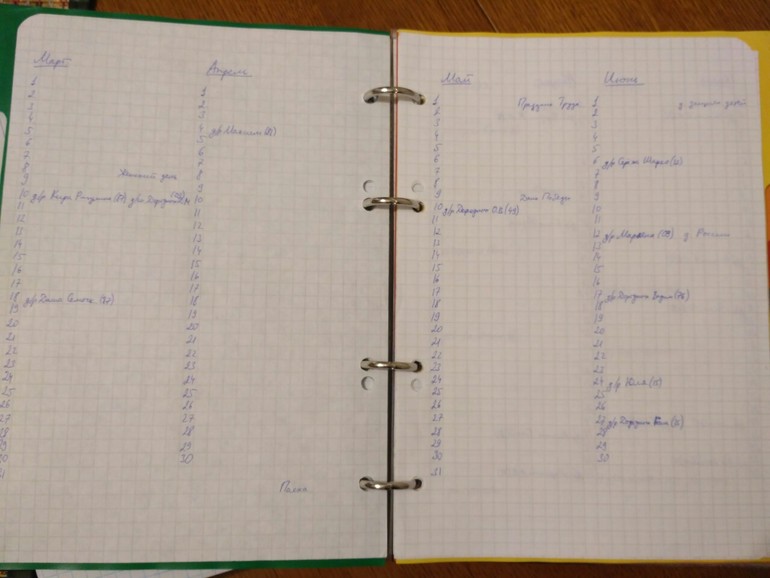 Март
1
2
3
4
5
6
7
8 Женский день
9
10 д/р Кира
11
12
13
14
15
16
17
18 д/р Даша
19
20
21
22
23
24
25
26
27
28
29
30
31
Апрель
1
2
3
4 д/р Максим
5
6
7
8
9
10
11
12
13
14
15
16
17
18
19
20
21
22
23
24
25
26
27
28
29
30
Пасха
Май
1 Праздник Труда
2
3
4
5
6
7
8
9 День Победы
10 д/р
11
12
13
14
15
16
17
18
19
20
21
22
23
24
25
26
27
28
29
30
31
Июнь
1 д. защиты детей
2
3
4
5
6 д/р Сергей
7
8
9
10
11
12 д/р д. России
13
14
15
16
17 д/р Вадим
18
19
20
21
22
23
24 д/р Юля (15)
25
26
27 д/р
28
29
30